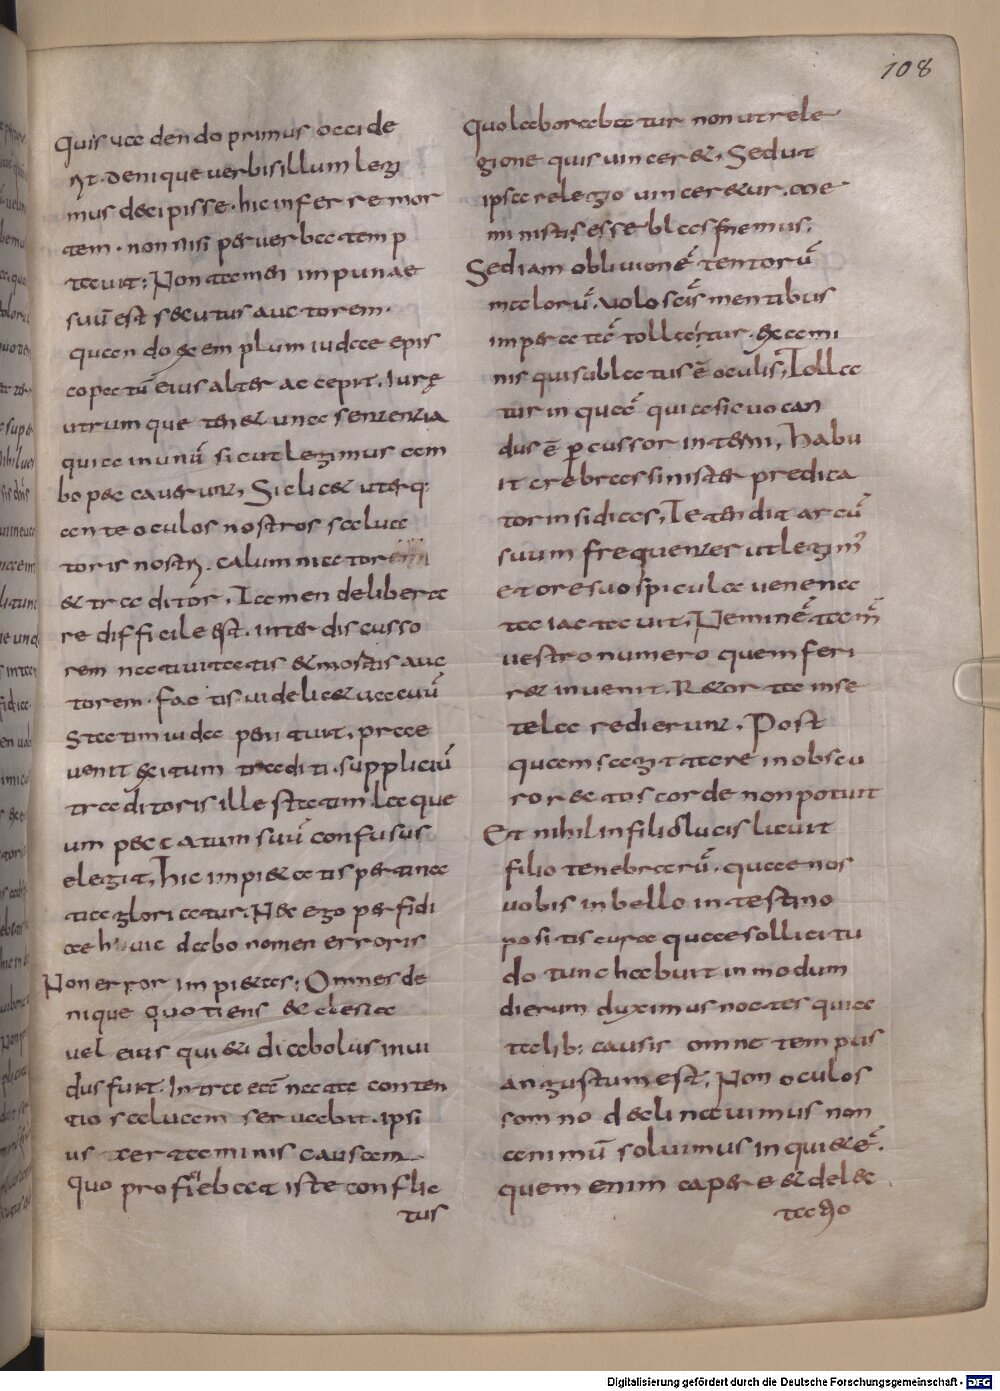 108
quis uadendo primus occide
rit. denique uerbis illum legi
mus decipisse. hic inferre mor
tem. non nisi per uerba temp
tauit; Non tamen impunae
suū est secutus auctorem.
quando exemplum iudae epis
copatū eius alter accepit. Iurę
utrumque tenet una sententia
qui a in unū sicut legimus am
bo peccauerunt, Si licet uterq:
ante oculos nostros salua
toris nostri. calumniator
& traditor. Tamen delibera
re difficile est. inter discusso
rem natiuitatis & mortis auc
torem. factis uidelicet uacuū
Statim iuda penituit. prae
uenit exitum traditi. suppliciū
traditoris ille statim laque
um peccatum suū confusus
elegit, hic impietatis pertina
tia gloriatur. Nec ego perfidi
ae huic dabo nomen erroris
Non error impietas; Omnes de
nique quotiens & clesia
uel eius qui ei diabolus inui
dus fuit. Intra eccē nata conten
tio salucem seruabit. ipsi
us exterminis causam
quo proficiebat iste conflic
tus
quo laborabatur non ut rele
gione quis uinceret, Sed ut
ipsa relegio uinceretur. me
ministis esse blasfemus.
Sed iam obliuionē tentorū
malorū. uolo sc̄īs mentibus
imperactē tollatur. et a cemi
nis quis ublatus ē oculis, Tolla
tur in quaē qui a sic uocan
dus ē percussor interni, habu
it crebras sinister predica
tor insidias, Tetendit arcū
suum frequenter ut legim̄
et ore suo spicula uenena
ta iactauit, Neminē tam̄
uestro numero quem feri
ret inuenit. Retorta in se
tela redierunt. Post
quam sagittare in obscu
ro rectos corde non potuit
Et nihil in filios lucis licuit
filio tenebrarū. quae nos
uobis in bello intestino
positis cura quae sollicitu
do tunc habuit in modum
dierum duximus noctes quia
talib: causis omne tempus
angustum est, Non oculos
somno declinauimus non
animū soluimus in quietē.
quem enim capere et delec
tatio
Digitalisierung gefördert durch die Deutsche Forschungsgemeinschaft - DFG